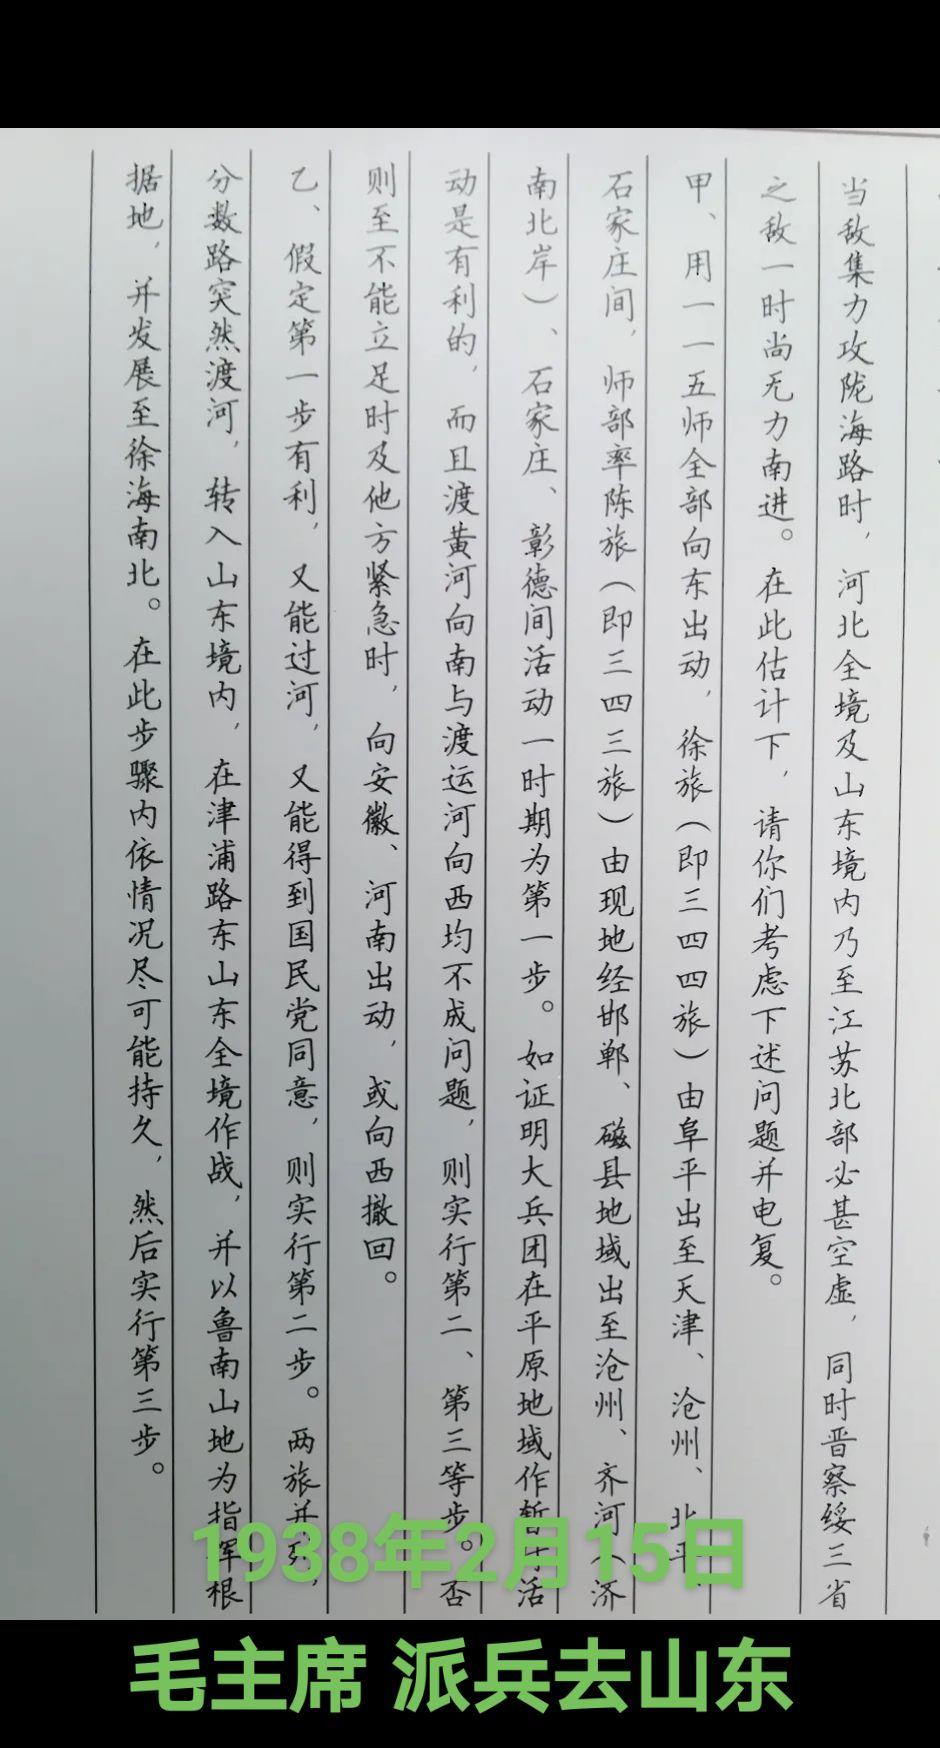 当敌集力攻陇海路时，河北全境及山东境内乃至江苏北部必甚空虚，同时晋察绥三省
之敌一时尚无力南进。在此估计下，请你们考虑下述问题并电复。
甲、用一一五师全部向东出动，徐旅（即三四四旅）由阜平出至天津、沧州、北平、
石家庄间，师部率陈旅（即三四三旅）由现地经邯郸、磁县地域出至沧州、齐河（济
南北岸）、石家庄、彰德间活动一时期为第一步。如证明大兵团在平原地域作暂时活
动是有利的，而且渡黄河向南与渡运河向西均不成问题，则实行第二、第三等步。否
则至不能立足时及他方紧急时，向安徽、河南出动，或向西撤回。
乙、假定第一步有利，又能过河，又能得到国民党同意，则实行第二步。两旅并列，
分数路突然渡河，转入山东境内，在津浦路东山东全境作战，并以鲁南山地为指挥根
据地，并发展至徐海南北。在此步骤内依情况尽可能持久，然后实行第三步。
1938年2月15日
毛主席 派兵去山东